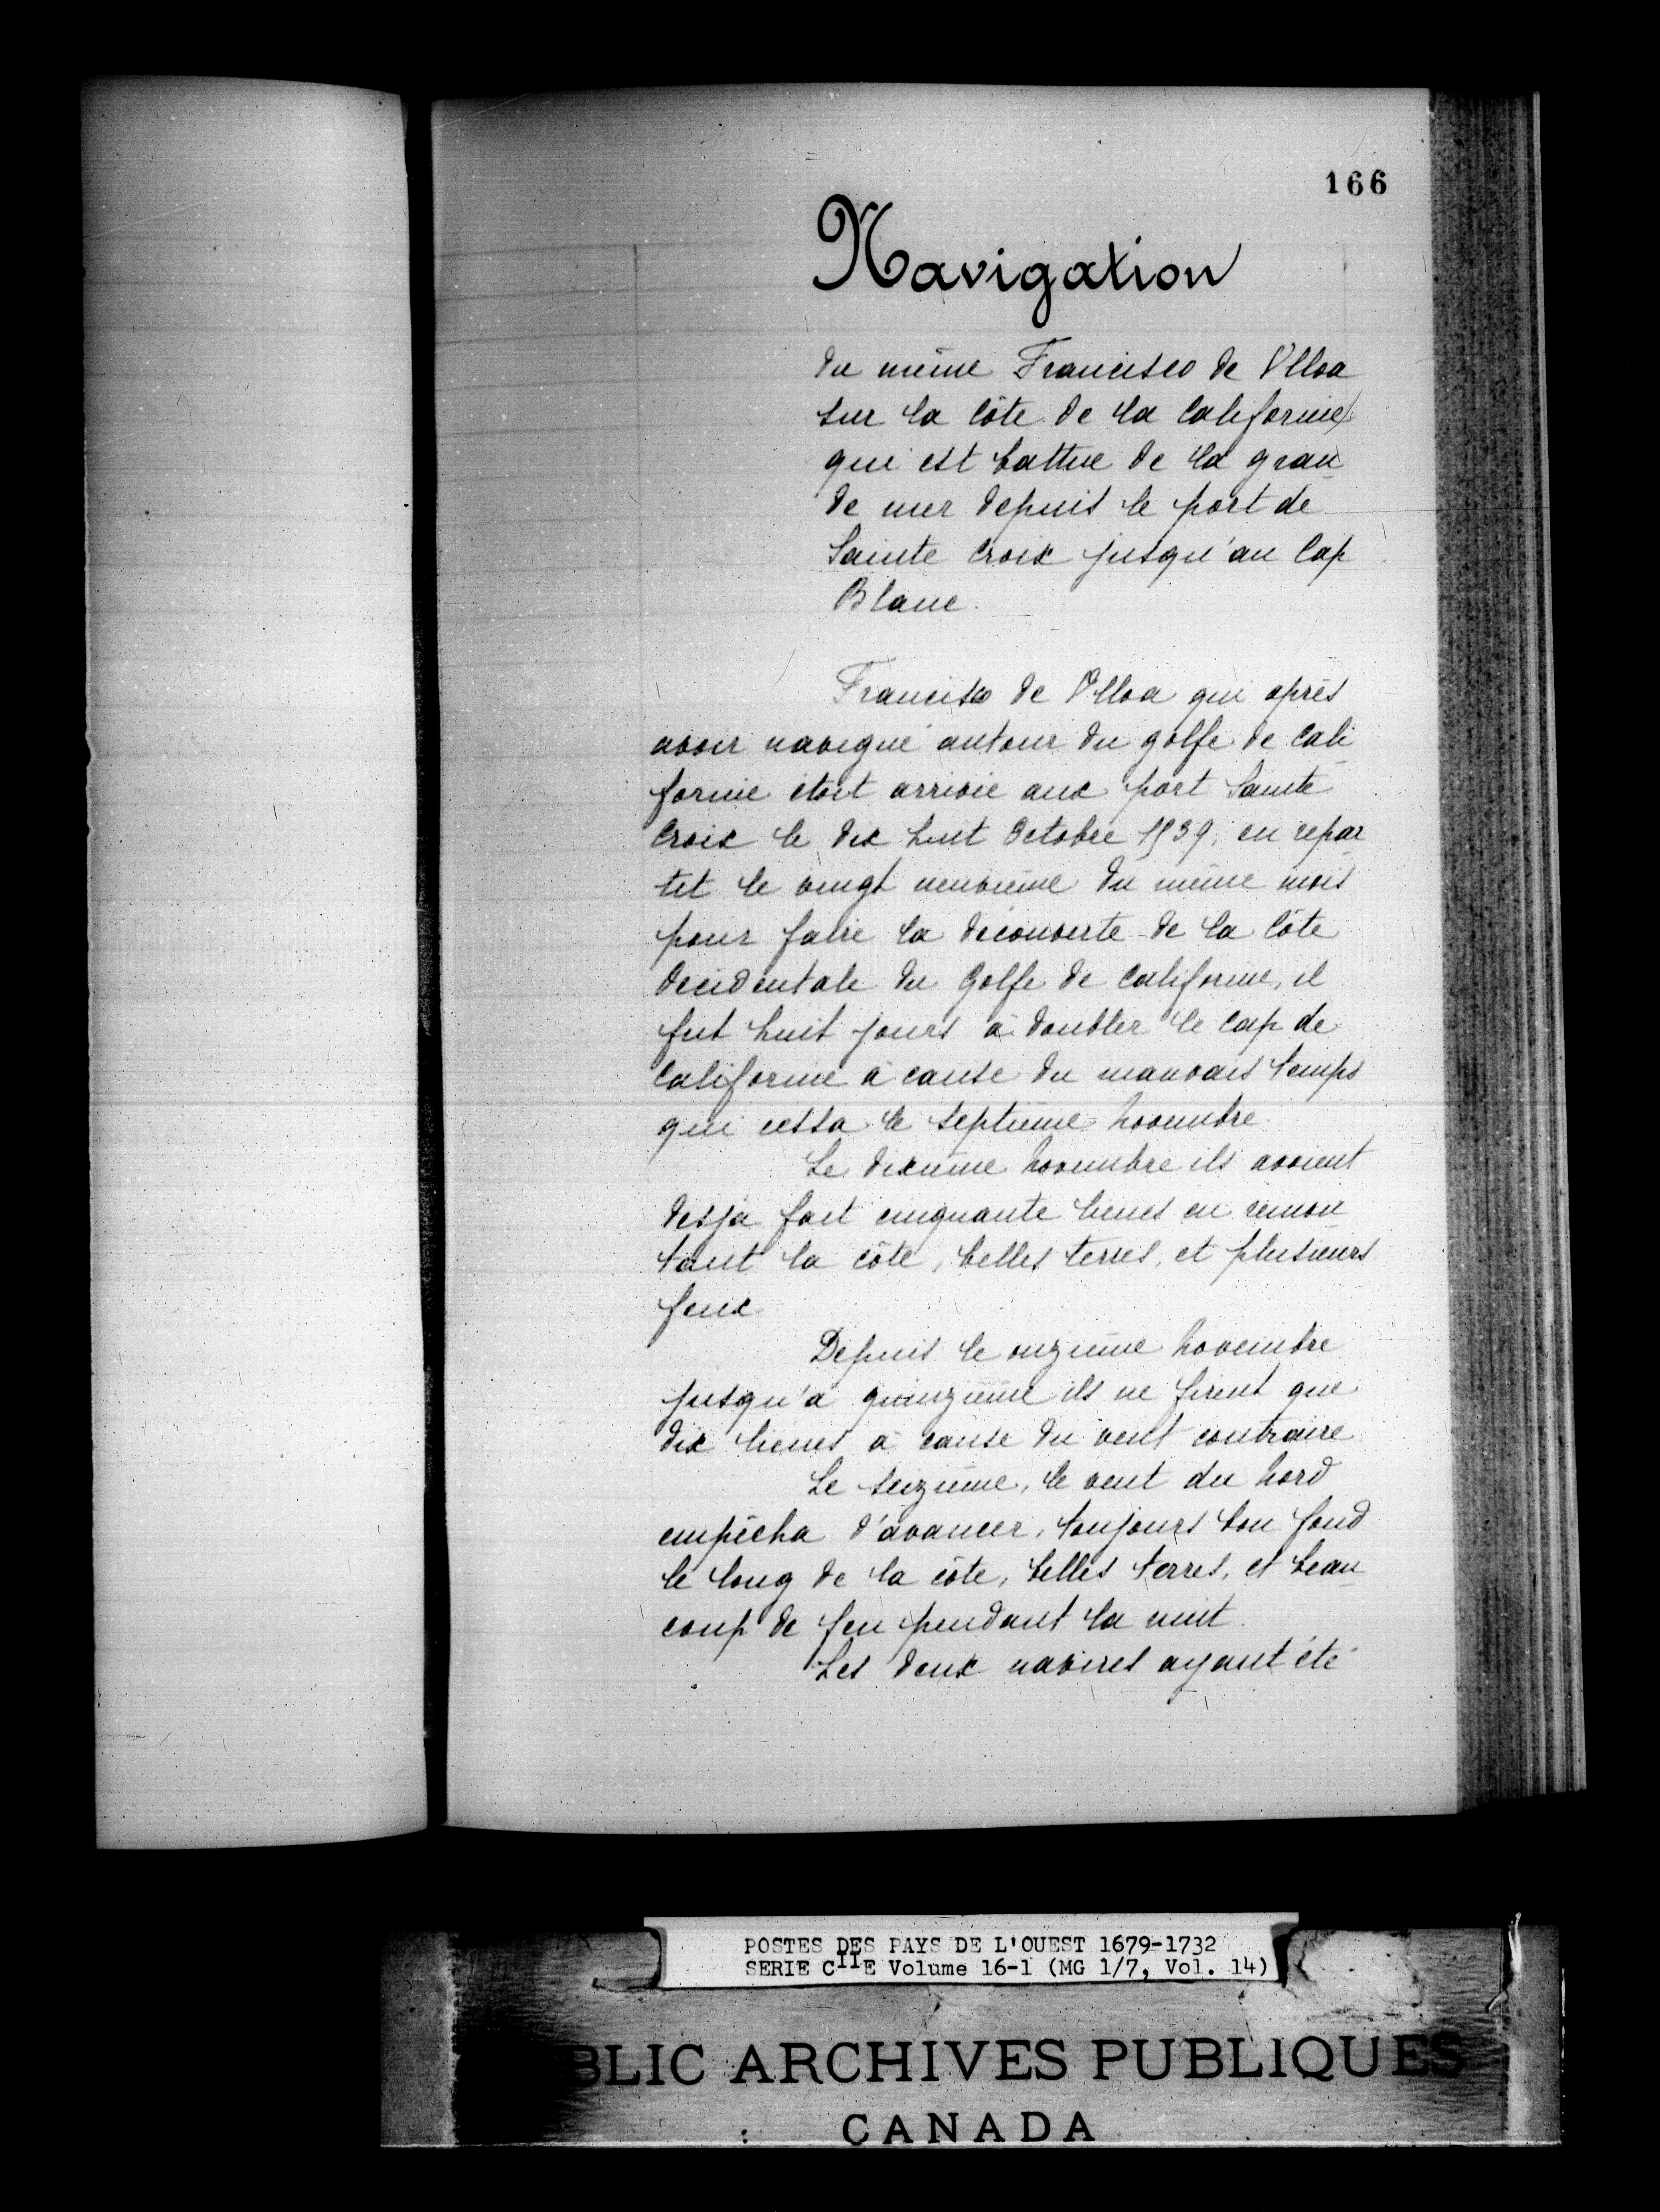 166
Navigation
du même Francisco de Ulloa
sur la Côte de la Californie
qui est battue de la gran
de mer depuis le port de
Sainte Croix jusqu'au Cap
Blanc.
Francisco de Ulloa qui après
avoir navigué autour du golfe de Cali
fornie étoit arrivié aux port Sainte
Croix le dix huit Octobre 1539. en repar
tit le vingt neuvième du même mois
pour faire la découverte de la Côte
Occidentale du Golfe de Californie, il
fut huit jours à doubler le Cap de
Californie à cause du mauvais temps
qui cessa le septième Novembre.
Le dixième Novembre ils avoient
desja fait cinquante lieues en remon
tant la côte, belles terres, et plusieurs
feux
Depuis le onzième Novembre
jusqu'à quinzième ils ne firent que
dix lieues à cause du vent contraire
Le seizième, le vent du Nord
empêcha d'avancer, toujours bon fond
le long de la côte, belles terres, et beau
coup de feu pendant la nuit.
Les deux navires ayant été
POSTES DES PAYS DE L'OUEST 1679-1732
SERIE CIIE Volume 16-1 (MG 1/7, Vol. 14)
BLIC ARCHIVES PUBLIQUES
CANADA